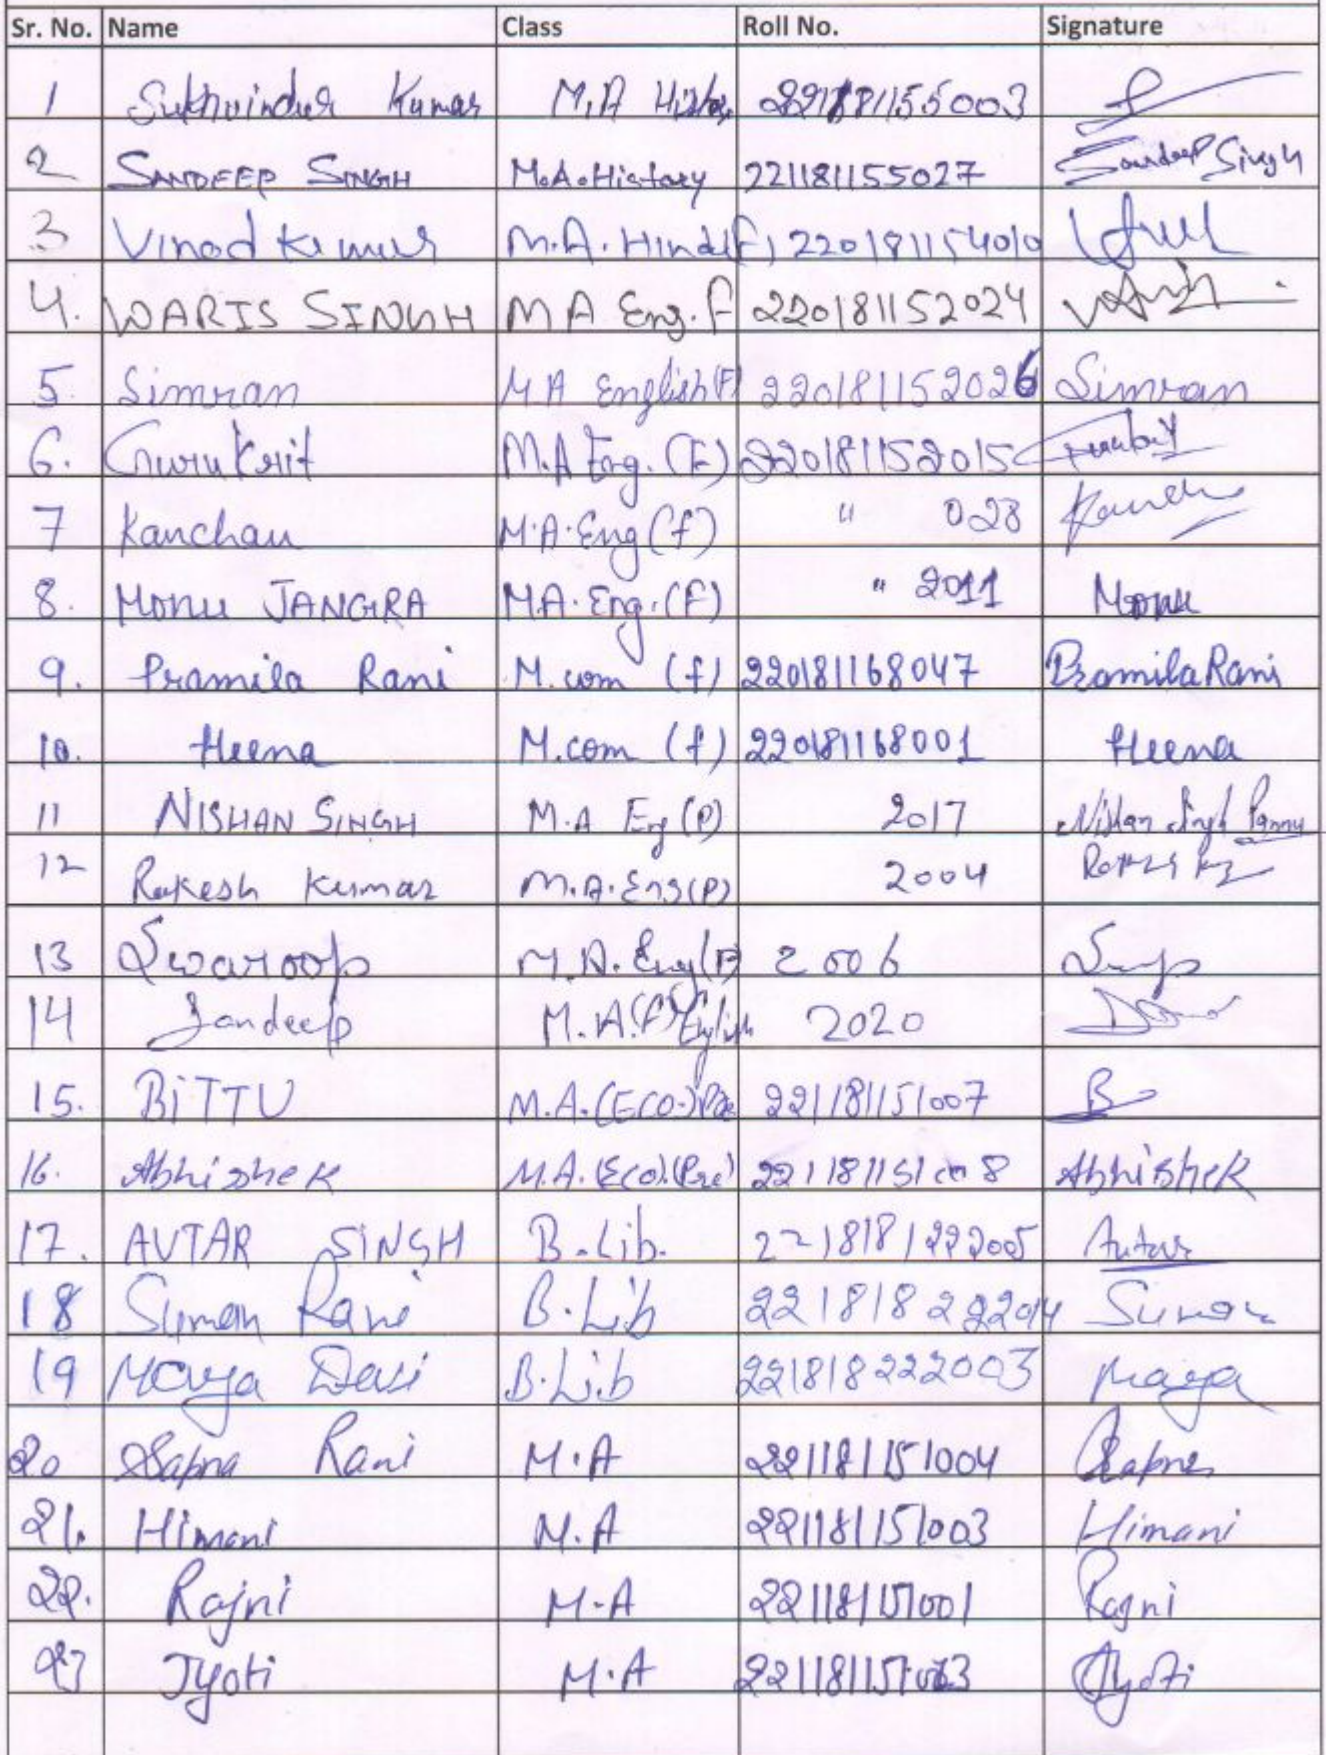 Sr. No. Name Class Roll No. Signature
1 Sukhvinder Kumar M.A History
2 SANDEEP SINGH M.A. History 221181155027 Sandeep Singh
3 Vinod Kumar M.A. Hindi(F) 220181154010
4. WARIS SINGH MA Eng. f 220181152024
5. Simran MA English(F) 220181152026 Simran
6. Gurukrit M.A Eng. (F) 220181152015
7 Kanchan M.A. Eng (f) " 028
8. Monu JANGRA M.A. Eng. (F) " 2011 Monu
9. Pramila Rani M.com (f) 220181168047 Pramila Rani
10. Heena M.com (f) 220181168001 Heena
11 NISHAN SINGH M.A Eng (P) 2017 Nishan Singh Pannu
12 Rakesh Kumar M.A. Eng(P) 2004
13 Swaroop M.A. Eng(F) 2006
14 Sandeep M.A.(F) English 2020
15. BiTTU M.A.(ECO.) 221181151007 B
16. Abhishek M.A. (Eco).(Pre) 221181151008 Abhishek
17. AVTAR SINGH B.Lib. Avtar
18 Suman Rani B.Lib Suman
19 Maya Devi B.Lib 221818222003 Maya
20 Sapna Rani M.A 221181151004 Sapna
21. Himani M.A 221181151003 Himani
22. Rajni M.A 221181151001 Rajni
23 Jyoti M.A Jyoti